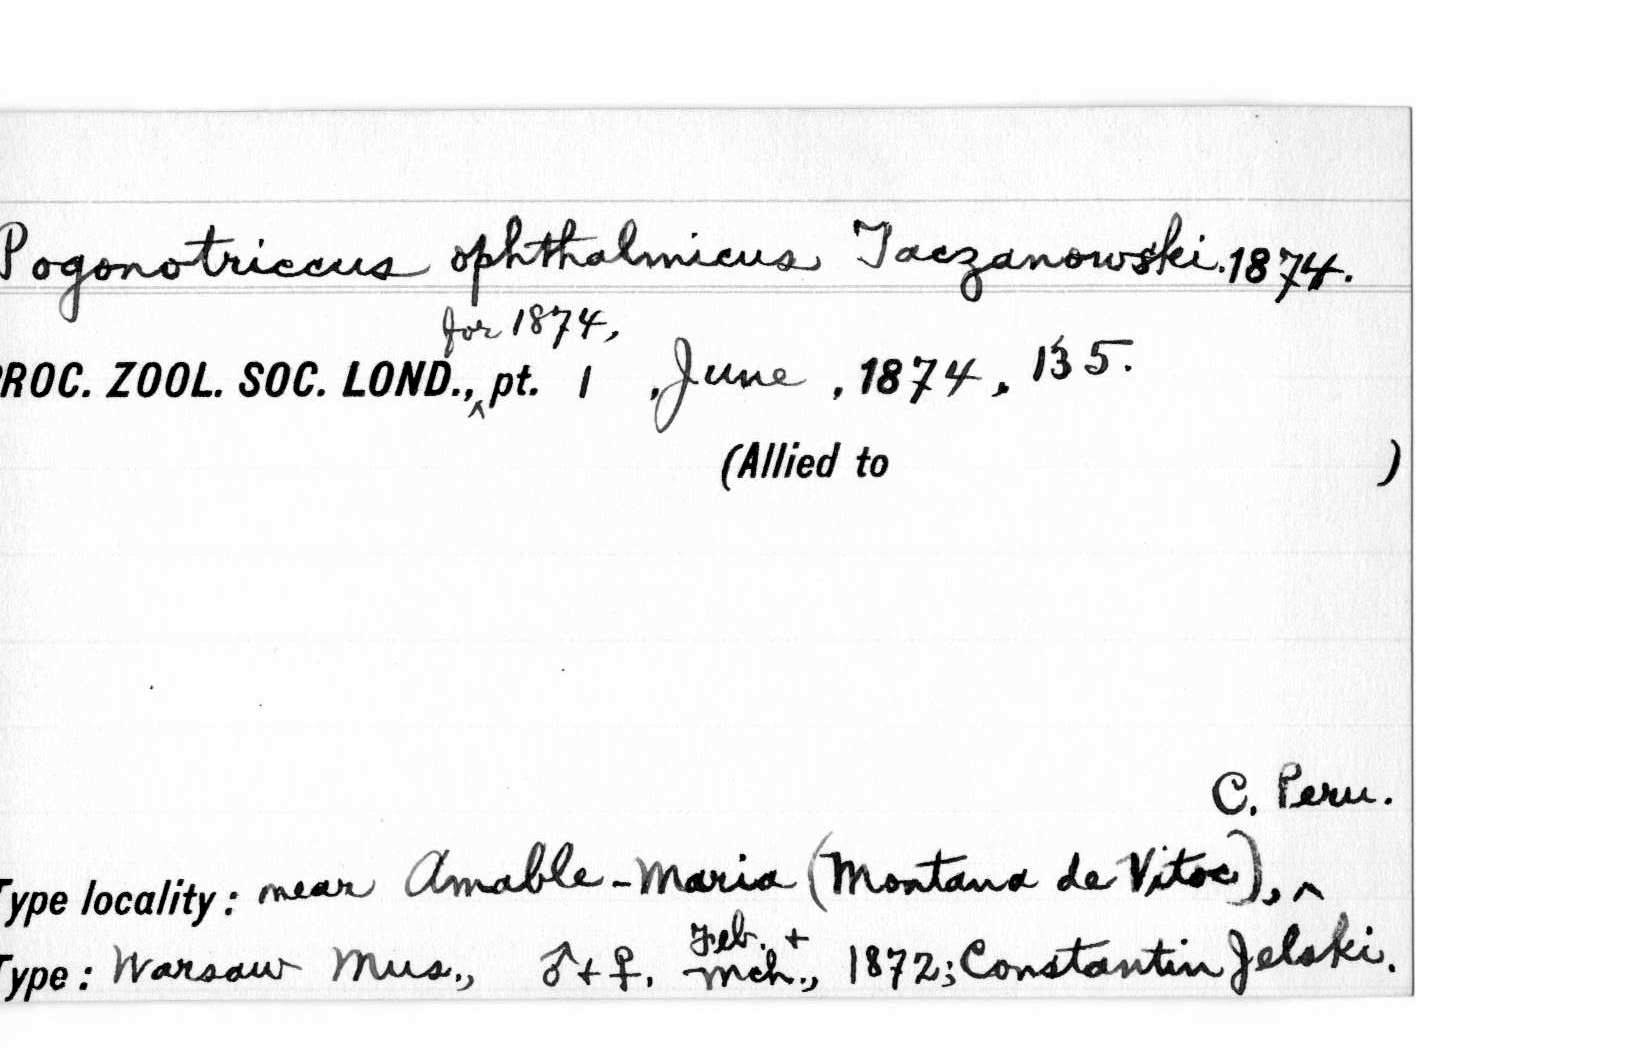 Pogonotriccus ophthalmicus Taczanowski. 1874.
for 1874,
PROC. ZOOL. SOC. LOND., ^ pt. 1 , June , 1874 , 135.
(Allied to )
C. Peru.
Type locality: near Amable-Maria (Montana de Vitoc), ^
Feb. +
Type: Warsaw Mus., ♂ + ♀. Mch., 1872; Constantin Jelski.